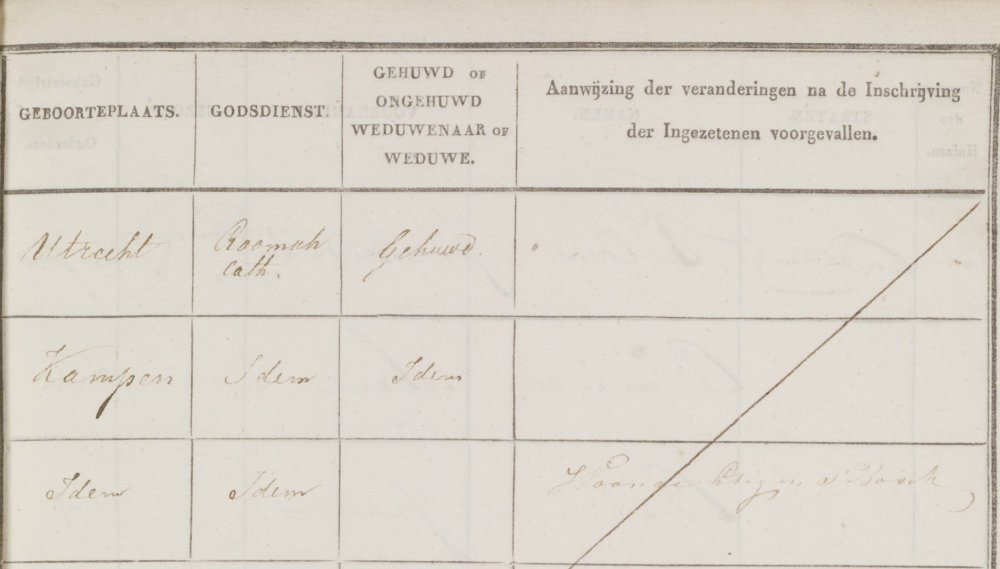 GEBOORTEPLAATS.
GODSDIENST.
GEHUWD OF
ONGEHUWD
WEDUWENAAR OF
WEDUWE.
Aanwijzing der veranderingen na de Inschrijving
der Ingezetenen voorgevallen.
Utrecht
Roomsch
Cath.
Gehuwd.
Kampen
Idem
Idem
Idem
Idem
in